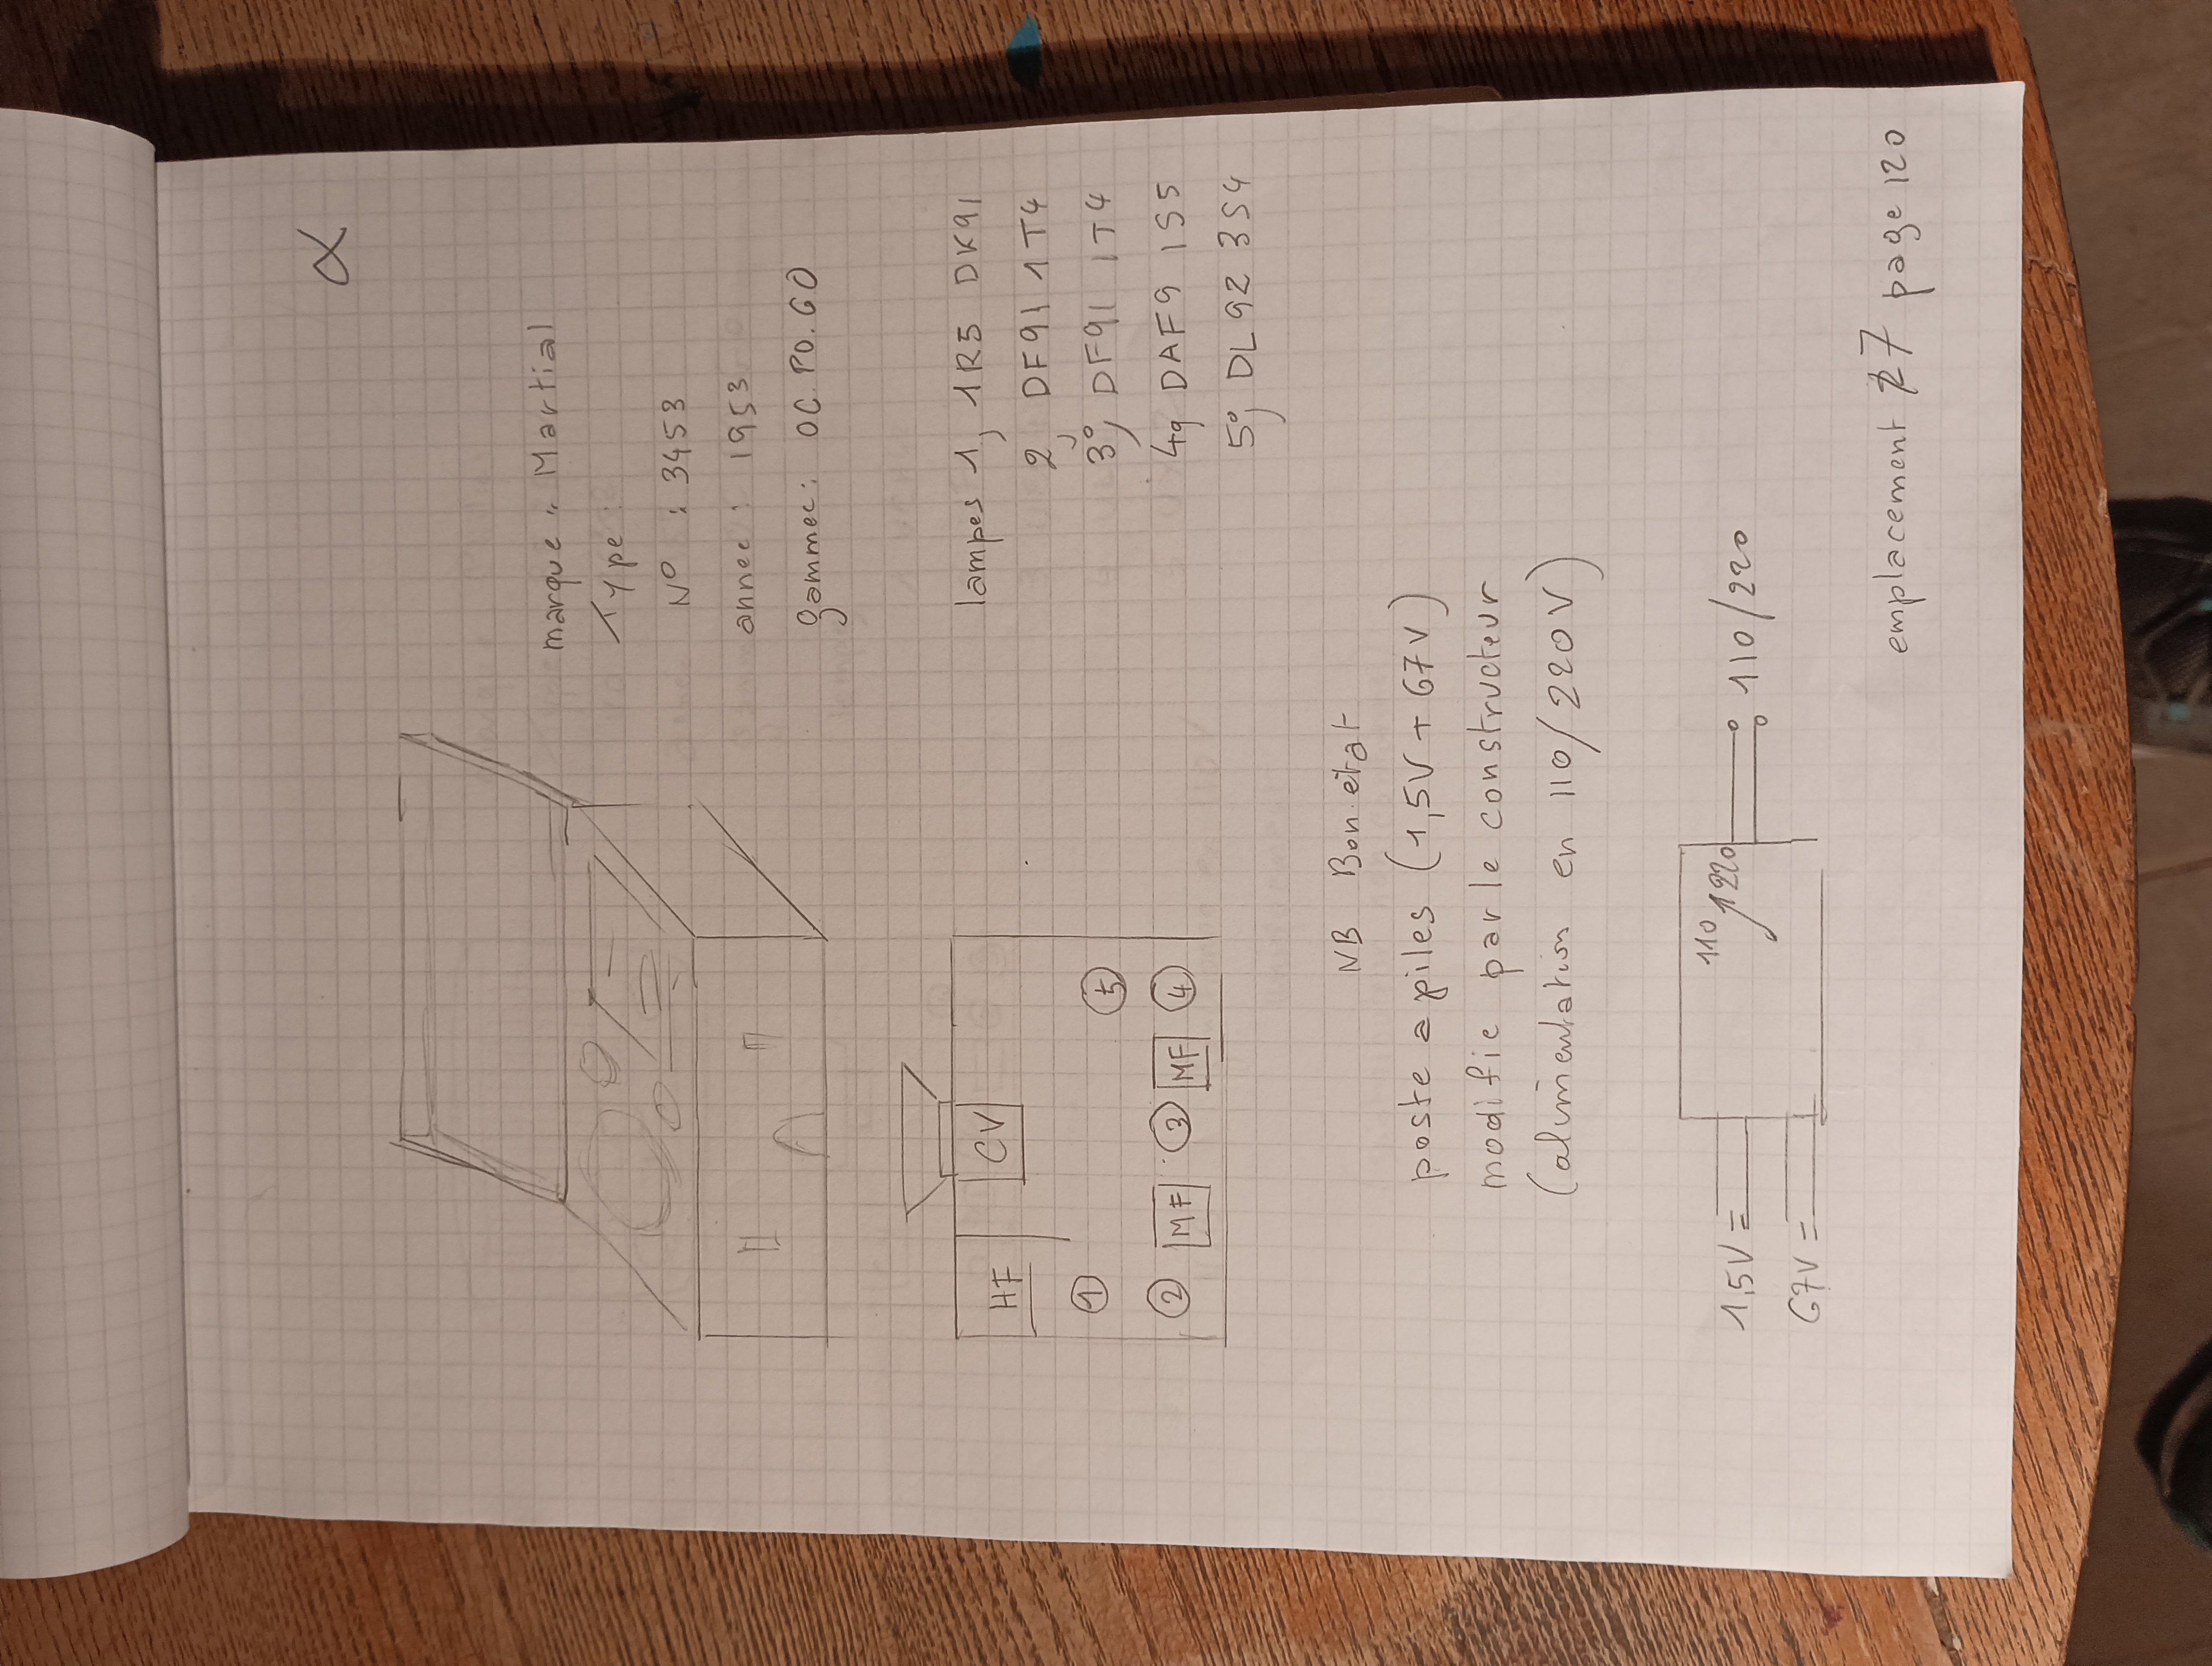 α
marque : Martial
Type :
N° : 3453
annee : 1953
gammec : OC. PO. GO
HF
CV
1
5
2 MF 3 MF 4
lampes 1, 1R5 DK91
2, DF91 1T4
3°, DF91 1T4
4, DAF9 1S5
5°, DL92 3S4
NB Bon etat
poste a piles (1,5V + 67V)
modifie par le constructeur
(alimentation en 110/220V)
110
220
1,5V =
110/220
67V =
emplacement 27 page 120